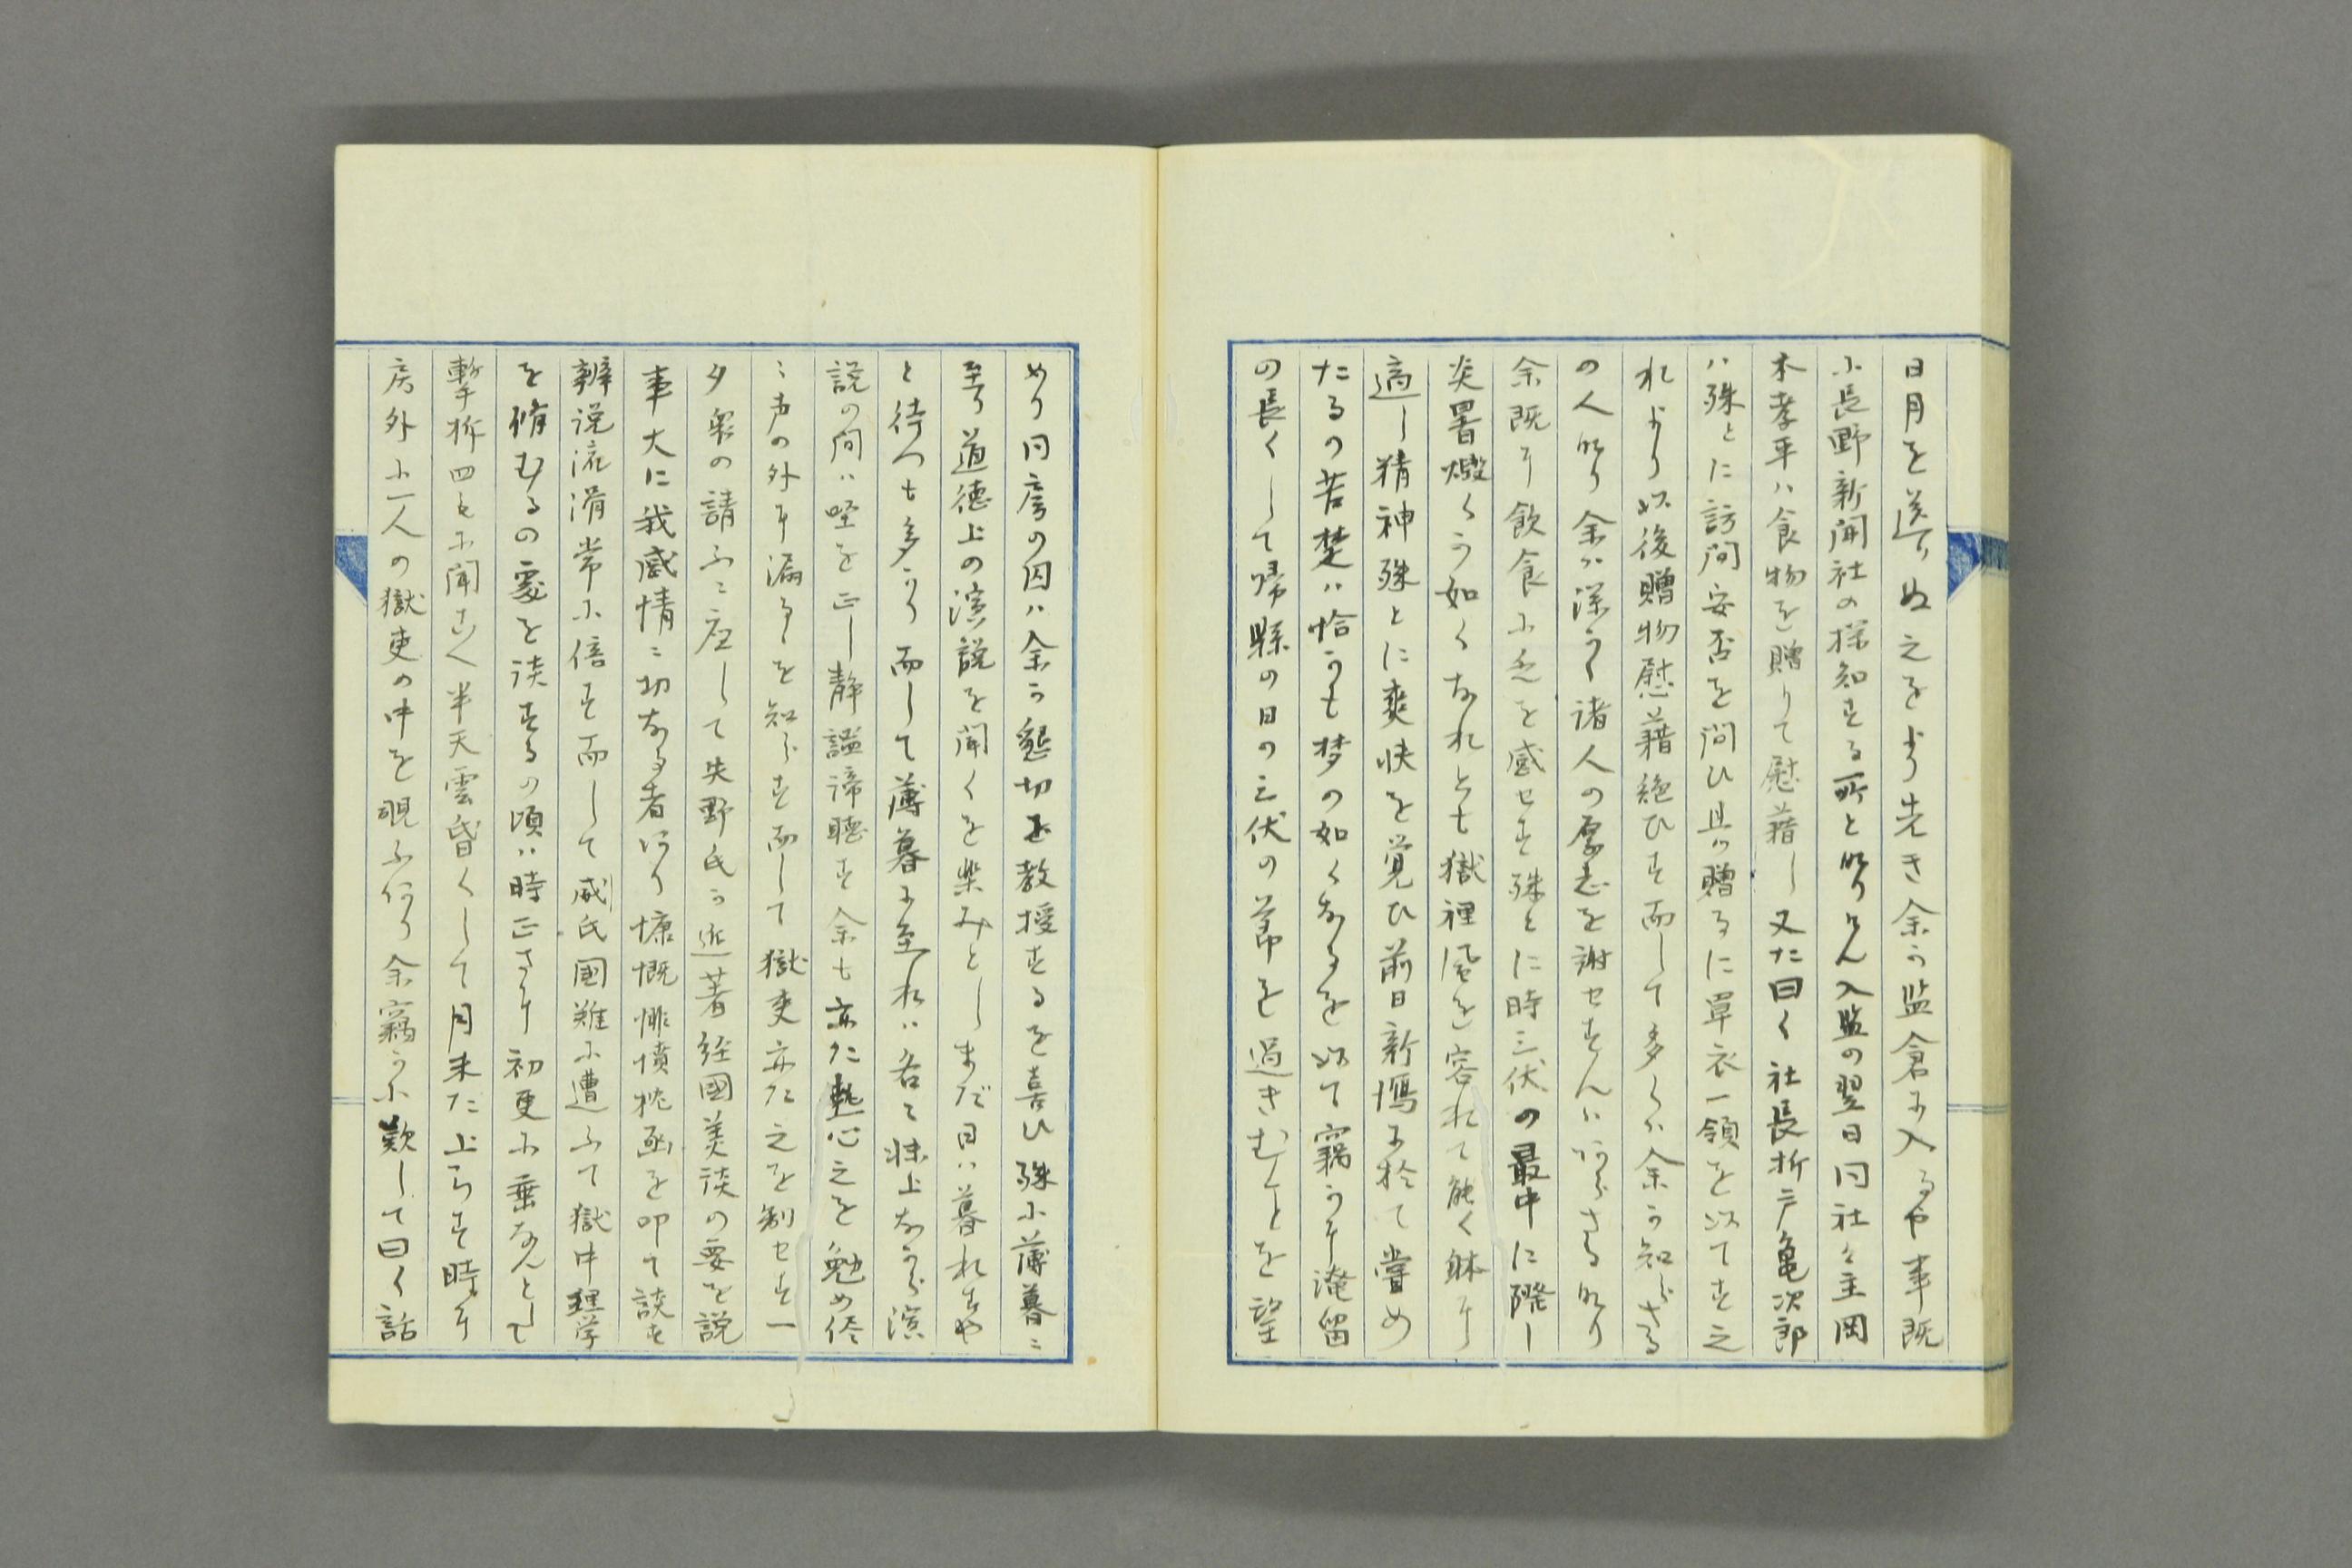 日月を送りぬ之より先き余の監倉に入るや事既
に長野新聞社の探知する所となりけん入監の翌日同社々主岡
本孝平ハ食物を贈りて慰藉し又た曰く社長折井亀次郎
ハ殊とに訪問安否を問ひ且つ贈るに単衣一領を以てす之
れより以後贈物慰藉絶ひす而して多くハ余の知らざる
の人なり余ハ深く諸人の厚志を謝せすんハあらさるなり
余既に飲食に乏を感せす殊とに時三伏の最中に際し
炎暑燬くか如くなれとも獄裡風を容れて能く躰に
適し精神殊とに爽快を覚ひ前日新潟に於て嘗め
たるの苦楚ハ恰かも梦の如くなるを以て竊かに淹留
の長くして帰縣の日の三伏の節を過きむことを望
めり同房の囚ハ余か懇切に教授するを喜ひ殊に薄暮ニ
至り道徳上の演説を聞くを楽みとしまだ日ハ暮れすや
と待つも多かり而して薄暮に至れハ各て牀上なから演
説の間ハ坐を正し静謐諦聴す余も亦た熱心之を勉め
ニ声の外に漏るゝを知らす而して獄吏亦た之を制せす一
夕衆の請ふニ応して矢野氏か近著経國美談の要を説
事大に我感情ニ切なる者あり慷慨悱憤枕函を叩て談す
辨説流滑常に倍す而して威氏國難に遭ふて獄中理学
を脩むるの処を談するの頃ハ時正さに初更に垂なんとして
撃柝四もに聞え半天雲昏くして月未た上らす時に
房外に一人の獄吏の中を覗ふ仍り余竊かに歎して曰く話